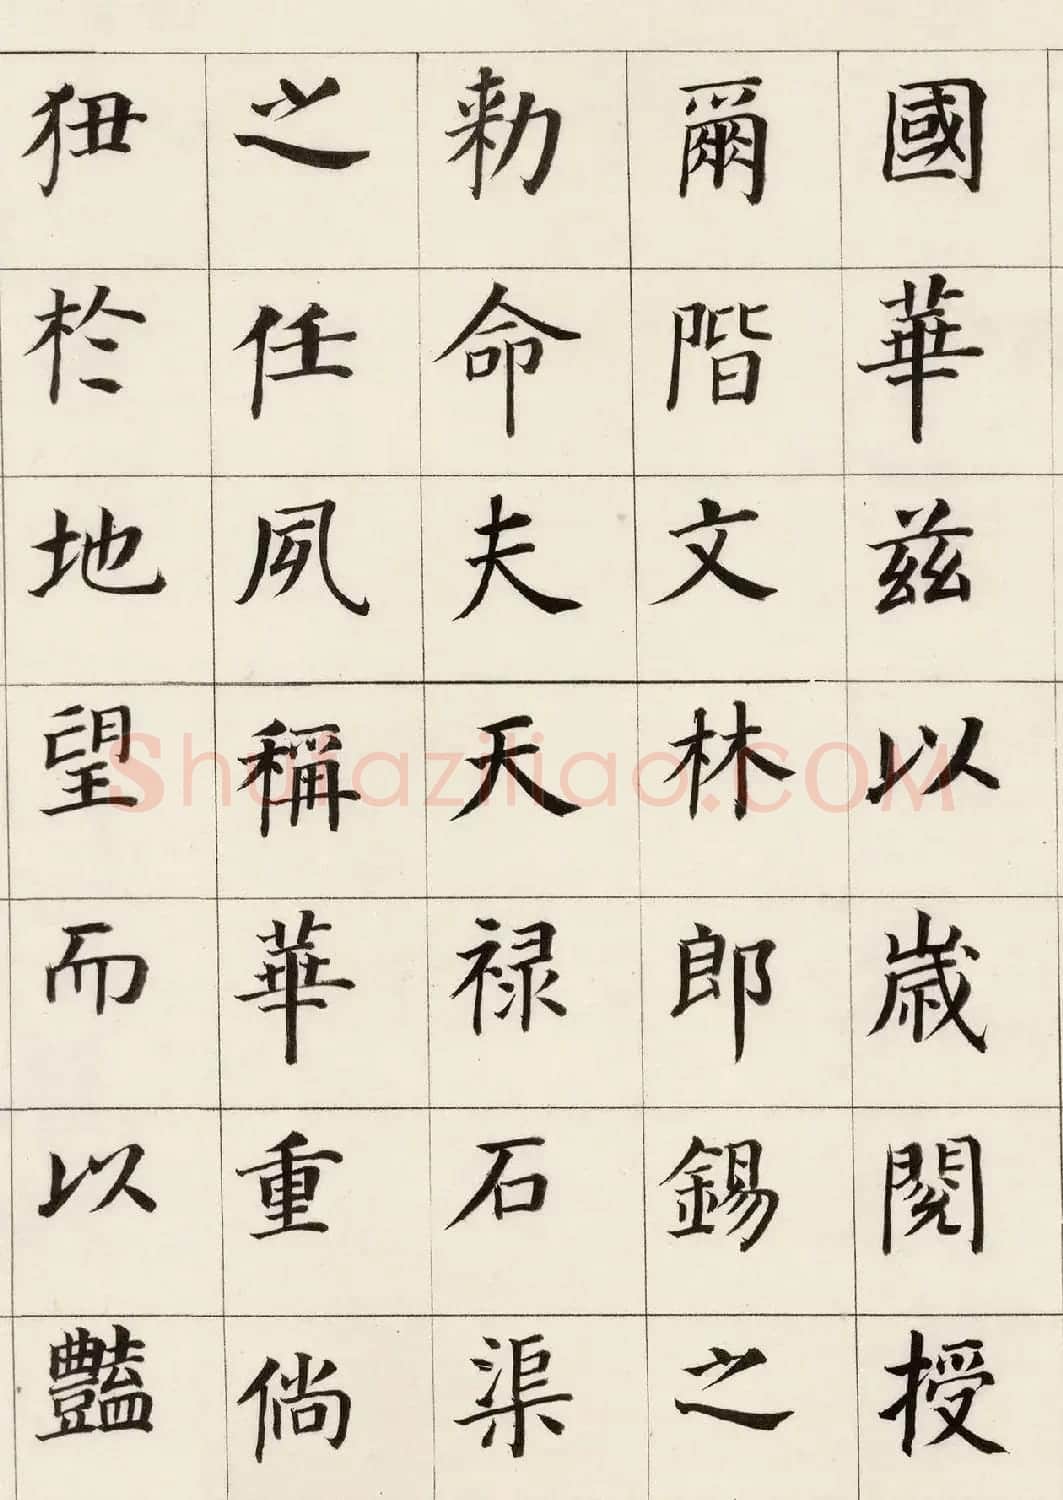 國華茲以歲閱授
爾階文林郎錫之
勑命夫天祿石渠
之任夙稱華重倘
狃於地望而以豔
shufaziliao.COM